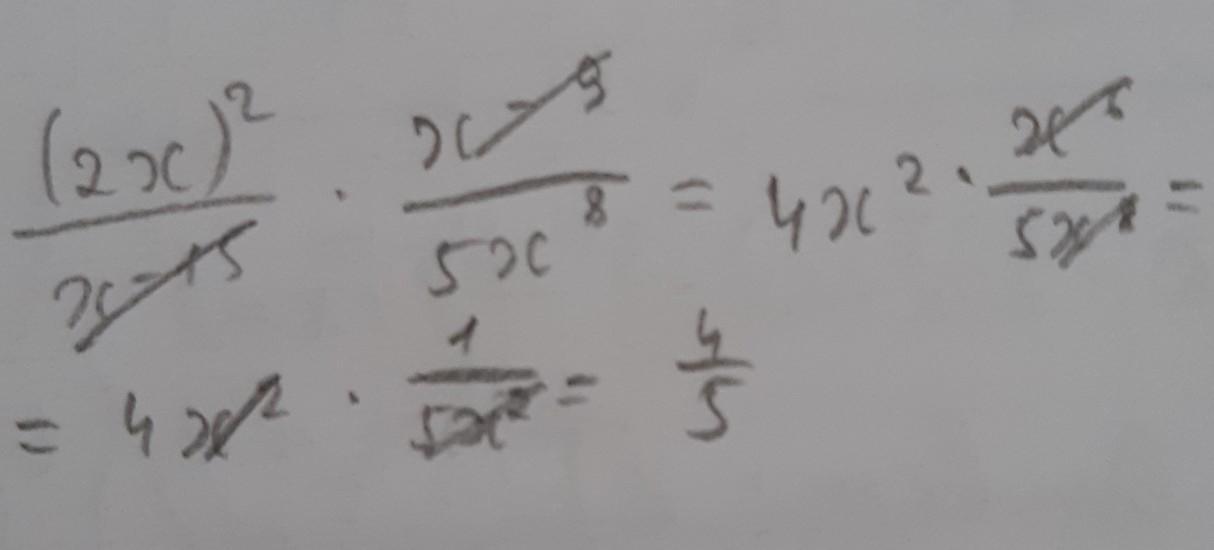 (2x)²/x⁻¹⁵ · x⁻⁹/5x⁸ = 4x² · x⁶/5x⁸ =
= 4x² · 1/5x² = 4/5